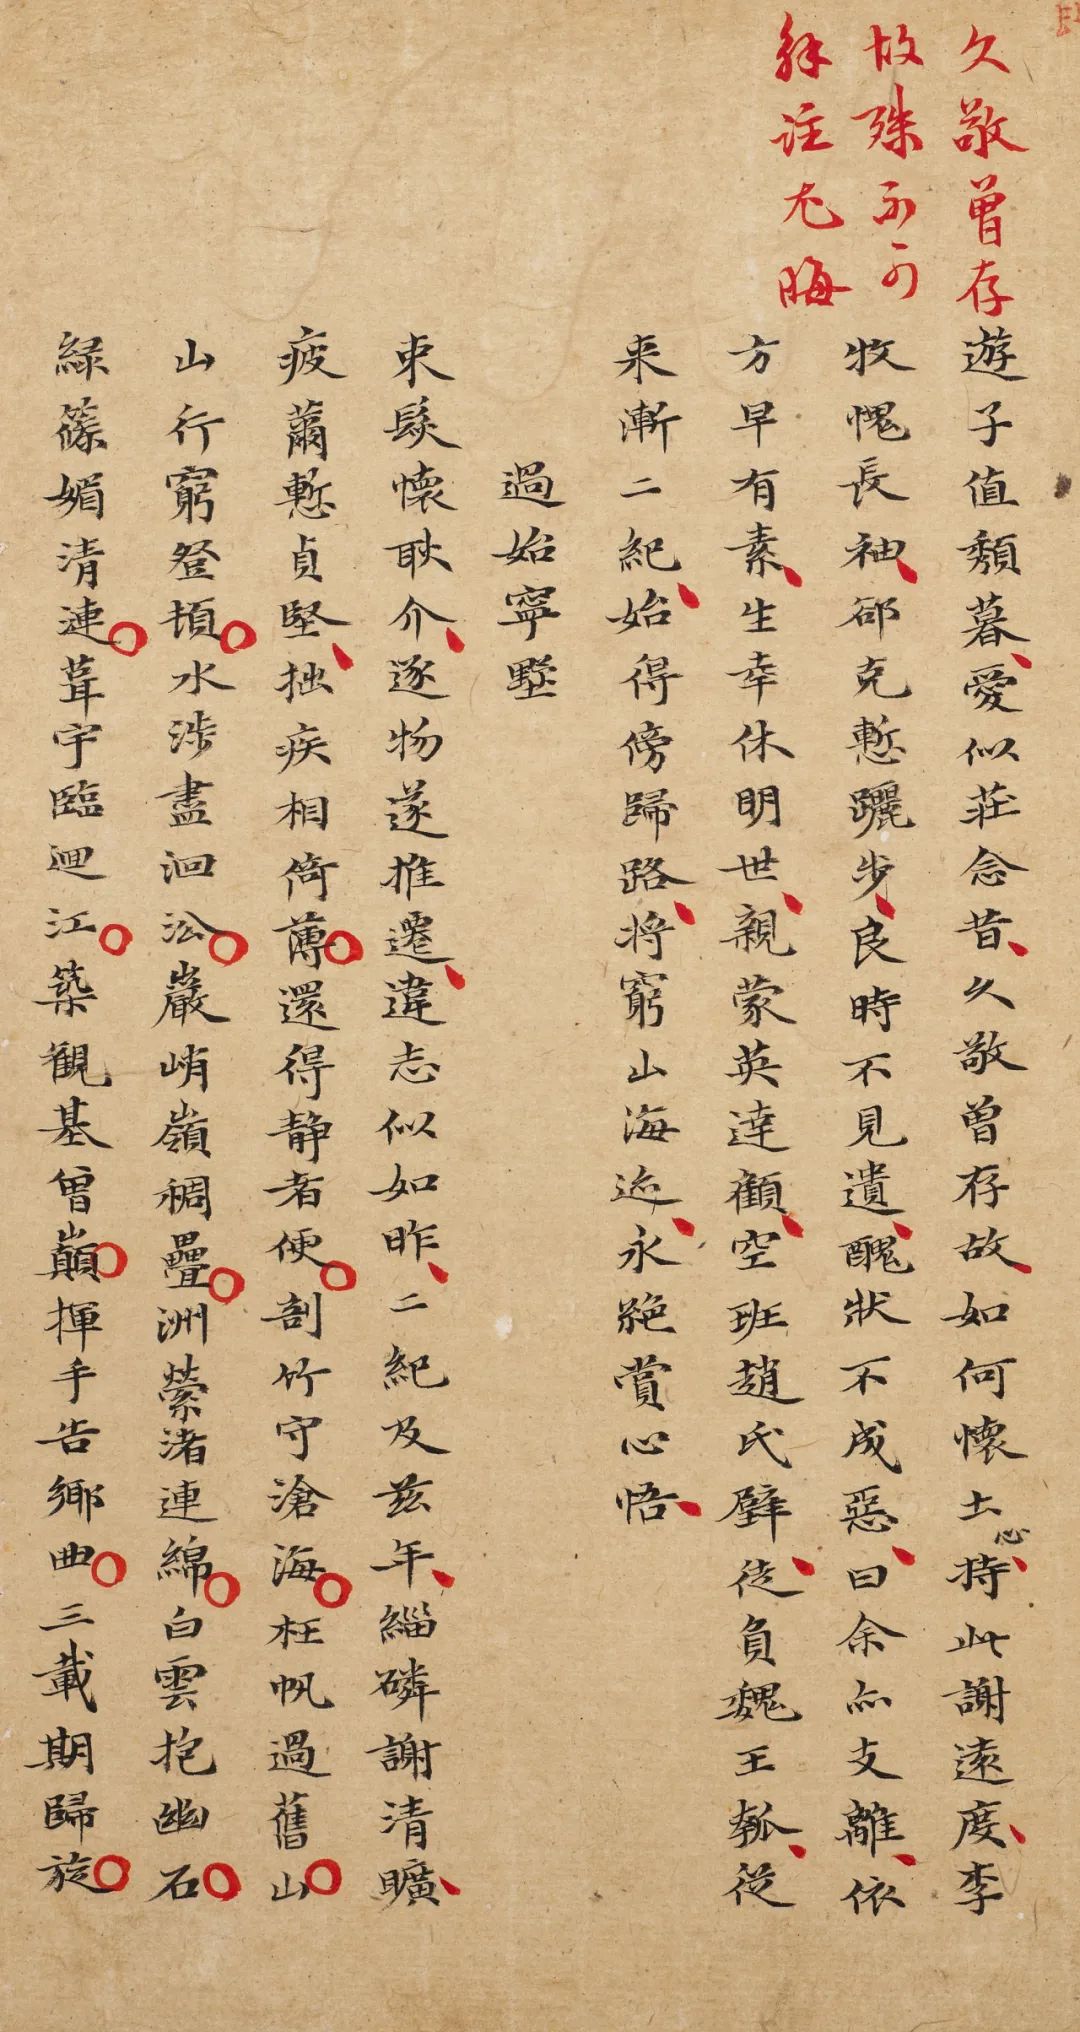 久敬曾存
故殊不可
解注尤晦
遊子值頹暮愛似莊念昔久敬曾存故如何懷土心持此謝遠度李
牧愧長袖郤克慙躧步良時不見遺醜狀不成惡曰余亦支離依
方早有素生幸休明世親蒙英達顧空班趙氏璧徒負魏王瓠從
来漸二紀始得傍歸路將窮山海迹永絕賞心悟
過始寧墅
束髮懷耿介逐物遂推遷違志似如昨二紀及茲年緇磷謝清曠
疲薾慙貞堅拙疾相倚薄還得静者便剖竹守滄海枉帆過舊山
山行窮登頓水涉盡洄沿巖峭嶺稠疊洲縈渚連綿白雲抱幽石
緑篠媚清漣葺宇臨迴江築觀基曾巔揮手告鄉曲三載期歸旋